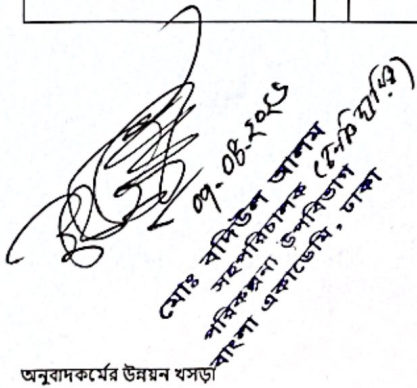 ০৭-০৪-২০২৬
মোঃ বদিউল আলম
সহপরিচালক
পরিকল্পনা উপবিভাগ
বাংলা একাডেমি, ঢাকা
অনুবাদকর্মের উন্নয়ন খসড়া